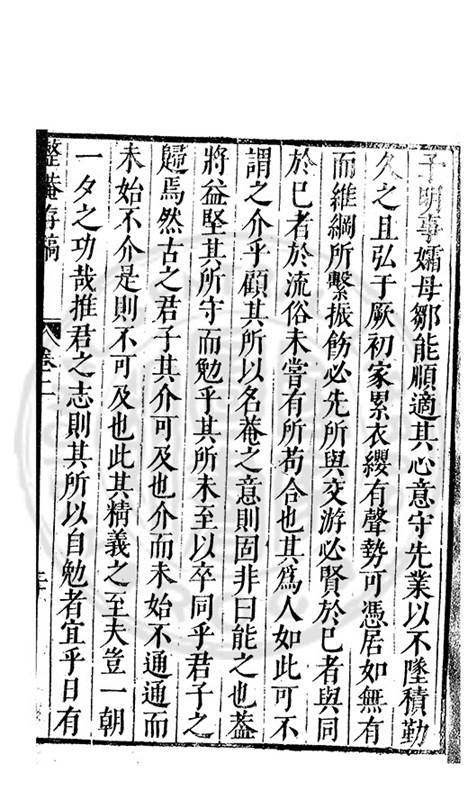 子明事孀母鄒能順適其心意守先業以不墜積勤
久之且弘于厥初家累衣纓有聲勢可憑居如無有
而維綱所繫振飭必先所與交游必賢於已者與同
於已者於流俗未嘗有所苟合也其爲人如此可不
謂之介乎顧其所以名菴之意則固非曰能之也葢
將益堅其所守而勉乎其所未至以卒同乎君子之
歸焉然古之君子其介可及也介而未始不通通而
未始不介是則不可及也此其精義之至夫豈一朝
一夕之功哉推君之志則其所以自勉者宜乎日有
整菴存稿
卷二